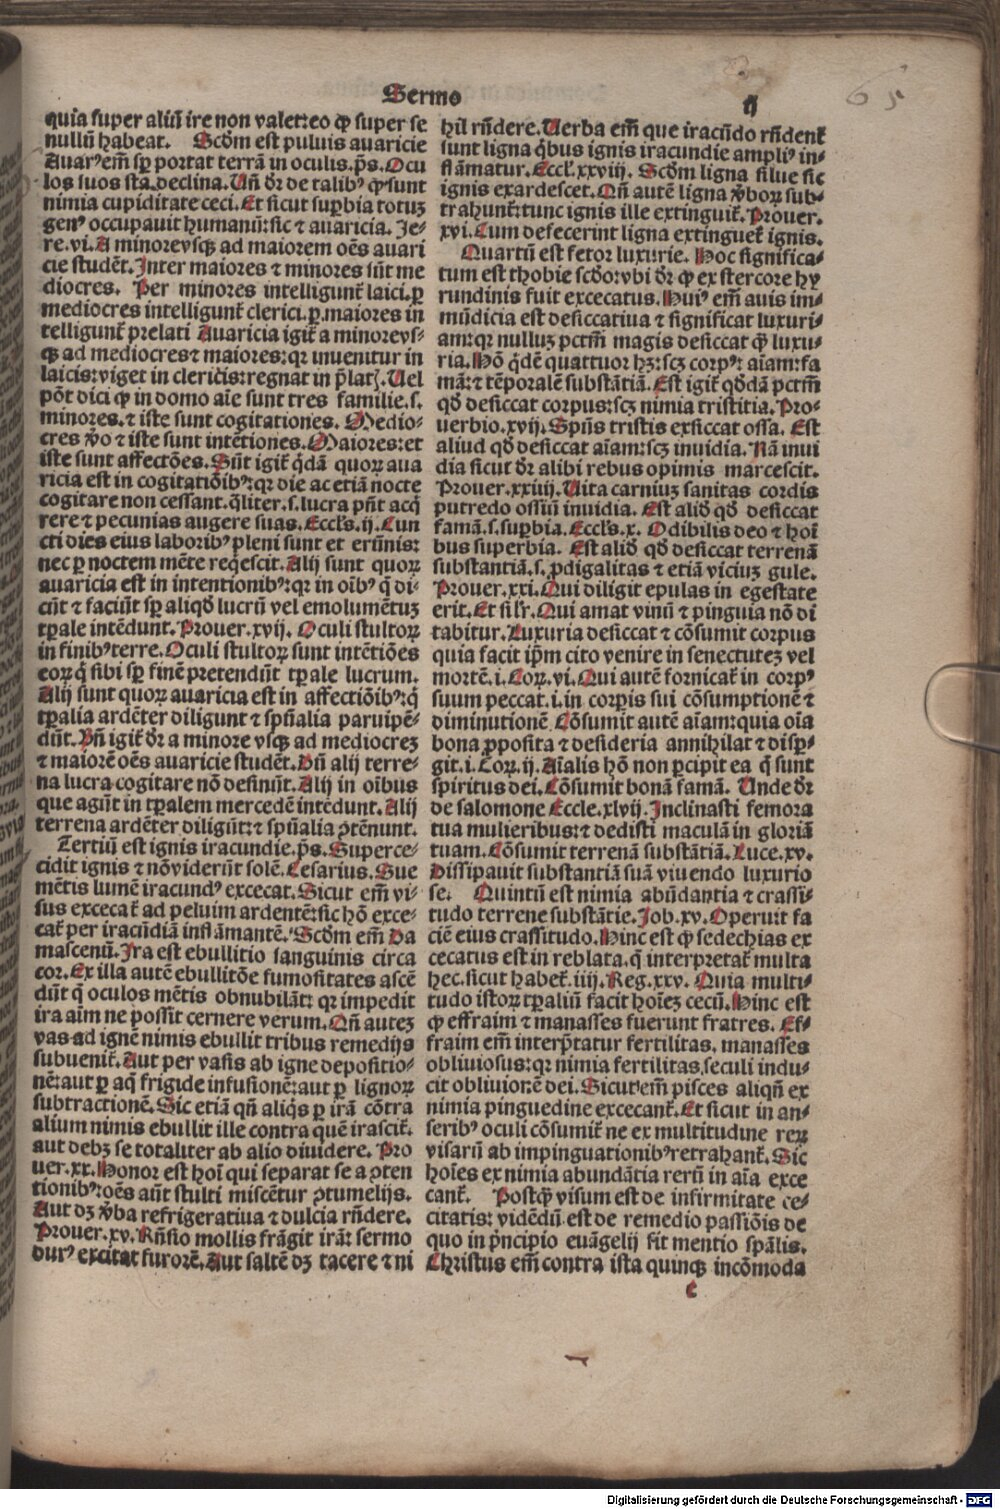 Sermo
ij
65
quia super aliũ ire non valet: eo ꝙ super se
nullũ habeat. Scđm est puluis auaricie
Auarꝰ em̃ sꝑ portat terrã in oculis. p̃s. Ocu
los suos sta. declina. Vñ dr̃ de talibꝰ ꝙ sunt
nimia cupiditate ceci. Et sicut suꝑbia totuꝫ
genꝰ occupauit humanũ: sic ⁊ auaricia. Je-
re. vi. A minore vsqꝫ ad maiorem oẽs auari
cie studẽt. Inter maiores ⁊ minores sũt me
diocres. Per minores intelligunt̃ laici. ꝑ
mediocres intelligunt̃ clerici. ꝑ. maiores in
telligunt̃ prelati Auaricia igit̃ a minore vs-
qꝫ ad mediocres ⁊ maiores: qꝛ inuenitur in
laicis: viget in clericis: regnat in p̃latꝭ. Uel
põt dici ꝙ in domo aĩe sunt tres familie. s.
minores. ⁊ iste sunt cogitationes. Medio-
cres ṽo ⁊ iste sunt intẽtiones. Maiores: et
iste sunt affectões. Sũt igit̃ q̃dã quoꝝ aua
ricia est in cogitatiõibꝰ: qꝛ die ac etiã nocte
cogitare non cessant. q̃liter. s. lucra pñt acq̃
rere ⁊ pecunias augere suas. Eccl̃s. ij. Cun
cti dies eius laboribꝰ pleni sunt et erũnis:
nec ꝑ noctem mẽte req̃escit. Alij sunt quoꝝ
auaricia est in intentionibꝰ: qꝛ in oĩbꝰ q̃ di-
cũt ⁊ faciũt sꝑ aliqđ lucrũ vel emolumẽtuꝫ
tꝑale intẽdunt. Prouer. xvij. Oculi stultoꝝ
in finibꝰ terre. Oculi stultoꝝ sunt intẽtiões
eoꝝ q̃ sibi sꝑ finẽ pretendũt tꝑale lucrum.
Alij sunt quoꝝ auaricia est in affectiõibꝰ: q̃
tꝑalia ardẽter diligunt ⁊ spũalia paruipẽ-
dũt. Vñ igit̃ dr̃ a minore vsqꝫ ad mediocreꝫ
⁊ maiorẽ oẽs auaricie studẽt. Vñ alij terre-
na lucra cogitare nõ desinũt. Alij in oĩbus
que agũt in tꝑalem mercedẽ intẽdunt. Alij
terrena ardẽter diligũt: ⁊ spũalia ꝯtẽnunt.
Tertiũ est ignis iracundie. p̃s. Superce-
cidit ignis ⁊ nõ viderũt solẽ. Cesarius. Sue
mẽtis lumẽ iracundꝰ excecat. Sicut em̃ vi-
sus excecat̃ ad peluim ardentẽ: sic hõ exce-
cat̃ per iracũdiã inflãmantẽ. Scđm em̃ Da
mascenũ. Ira est ebullitio sanguinis circa
cor. Ex illa autẽ ebullitõe fumositates ascẽ
dũt q̃ oculos mẽtis obnubilãt: qꝛ impedit
ira aim ne possit cernere verum. Qñ auteꝫ
vas ad ignẽ nimis ebullit tribus remedijs
subuenit̃. Aut per vasis ab igne depositio-
nẽ: aut ꝑ aq̃ frigide infusionẽ: aut ꝑ lignoꝝ
subtractionẽ. Sic etiã qñ aliq̃s ꝑ irã cõtra
alium nimis ebullit ille contra quẽ irascit̃.
aut debꝫ se totaliter ab alio diuidere. Pro
uer. xx. Honor est hoĩ qui separat se a ꝯten
tionibꝰ: oẽs aũt stulti miscẽtur ꝯtumelijs.
Aut dꝫ ṽba refrigeratiua ⁊ dulcia rñdere.
Prouer. xv. Rñsio mollis frãgit irã: sermo
durꝰ excitat furorẽ. Aut saltẽ dꝫ tacere ⁊ ni
hil rñdere. Uerba em̃ que iracũdo rñdent̃
sunt ligna q̃bus ignis iracundie ampliꝰ in-
flãmatur. Eccl̃. xxviij. Scđm ligna silue sic
ignis exardescet. Qñ autẽ ligna ṽboꝝ sub-
trahunt̃: tunc ignis ille extinguit̃. Prouer.
xvi. Cum defecerint ligna extinguet̃ ignis.
Quartũ est fetor luxurie. Hoc significa-
tum est thobie scđo: vbi dr̃ ꝙ ex stercore hy
rundinis fuit excecatus. Huiꝰ em̃ auis im-
mũdicia est desiccatiua ⁊ significat luxuri-
am: qꝛ nulluꝫ pctm̃ magis desiccat q̃ luxu-
ria. Hõ q̃dẽ quattuor hꝫ: scꝫ corpꝰ: aĩam: fa
mã: ⁊ tẽporalẽ substãtiã. Est igit̃ qđdã pctm̃
qđ desiccat corpus: scꝫ nimia tristitia. Pro-
uerbio. xvij. Spũs tristis exsiccat ossa. Est
aliud qđ desiccat aĩam: scꝫ inuidia. Nã inui
dia sicut dr̃ alibi rebus opimis marcescit.
Prouer. xxiiij. Uita carniuꝫ sanitas cordis
putredo ossiũ inuidia. Est aliđ qđ desiccat
famã. s. suꝑbia. Eccl̃s. x. Odibilis deo ⁊ hoĩ
bus superbia. Est aliđ qđ desiccat terrenã
substantiã. s. ꝓdigalitas ⁊ etiã viciuꝫ gule.
Prouer. xxi. Qui diligit epulas in egestate
erit. Et sil̃r. Qui amat vinũ ⁊ pinguia nõ di
tabitur. Luxuria desiccat ⁊ cõsumit corpus
quia facit ip̃m cito venire in senectuteꝫ vel
mortẽ. i. Coꝝ. vi. Qui autẽ fornicat̃ in corpꝰ
suum peccat. i. in corpis sui cõsumptionẽ ⁊
diminutionẽ Cõsumit autẽ aĩam: quia oĩa
bona ꝓposita ⁊ desideria annihilat ⁊ disꝑ-
git. i. Coꝝ. ij. Aĩalis hõ non ꝑcipit ea q̃ sunt
spiritus dei. Cõsumit bonã famã. Unde dr̃
de salomone Eccle. xlvij. Inclinasti femora
tua mulieribus: ⁊ dedisti maculã in gloriã
tuam. Cõsumit terrenã substãtiã. Luce. xv.
Dissipauit substantiã suã viuendo luxurio
se. Quintũ est nimia abũdantia ⁊ crassi-
tudo terrene substãtie. Job. xv. Operuit fa
ciẽ eius crassitudo. Hinc est ꝙ sedechias ex
cecatus est in reblata. q̃ interpretat̃ multa
hec. sicut habet̃. iiij. Reg. xxv. Quia multi-
tudo istoꝝ tꝑaliũ facit hoĩeꝫ cecũ. Hinc est
ꝙ effraim ⁊ manasses fuerunt fratres. Ef-
fraim em̃ interp̃tatur fertilitas. manasses
obliuiosus: qꝛ nimia fertilitas. seculi indu-
cit obliuionẽ dei. Sicut em̃ pisces aliqñ ex
nimia pinguedine excecant̃. Et sicut in an-
seribꝰ oculi cõsumit̃ ne ex multitudine reꝝ
visarũ ab impinguationibꝰ retrahant̃. Sic
hoĩes ex nimia abundãtia rerũ in aĩa exce
cant̃. Postq̃ visum est de infirmitate ce-
citatis: vidẽdũ est de remedio passiõis de
quo in p̃ncipio euãgelij fit mentio sp̃alis.
Christus em̃ contra ista quinqꝫ incõmoda
c
Digitalisierung gefördert durch die Deutsche Forschungsgemeinschaft - DFG